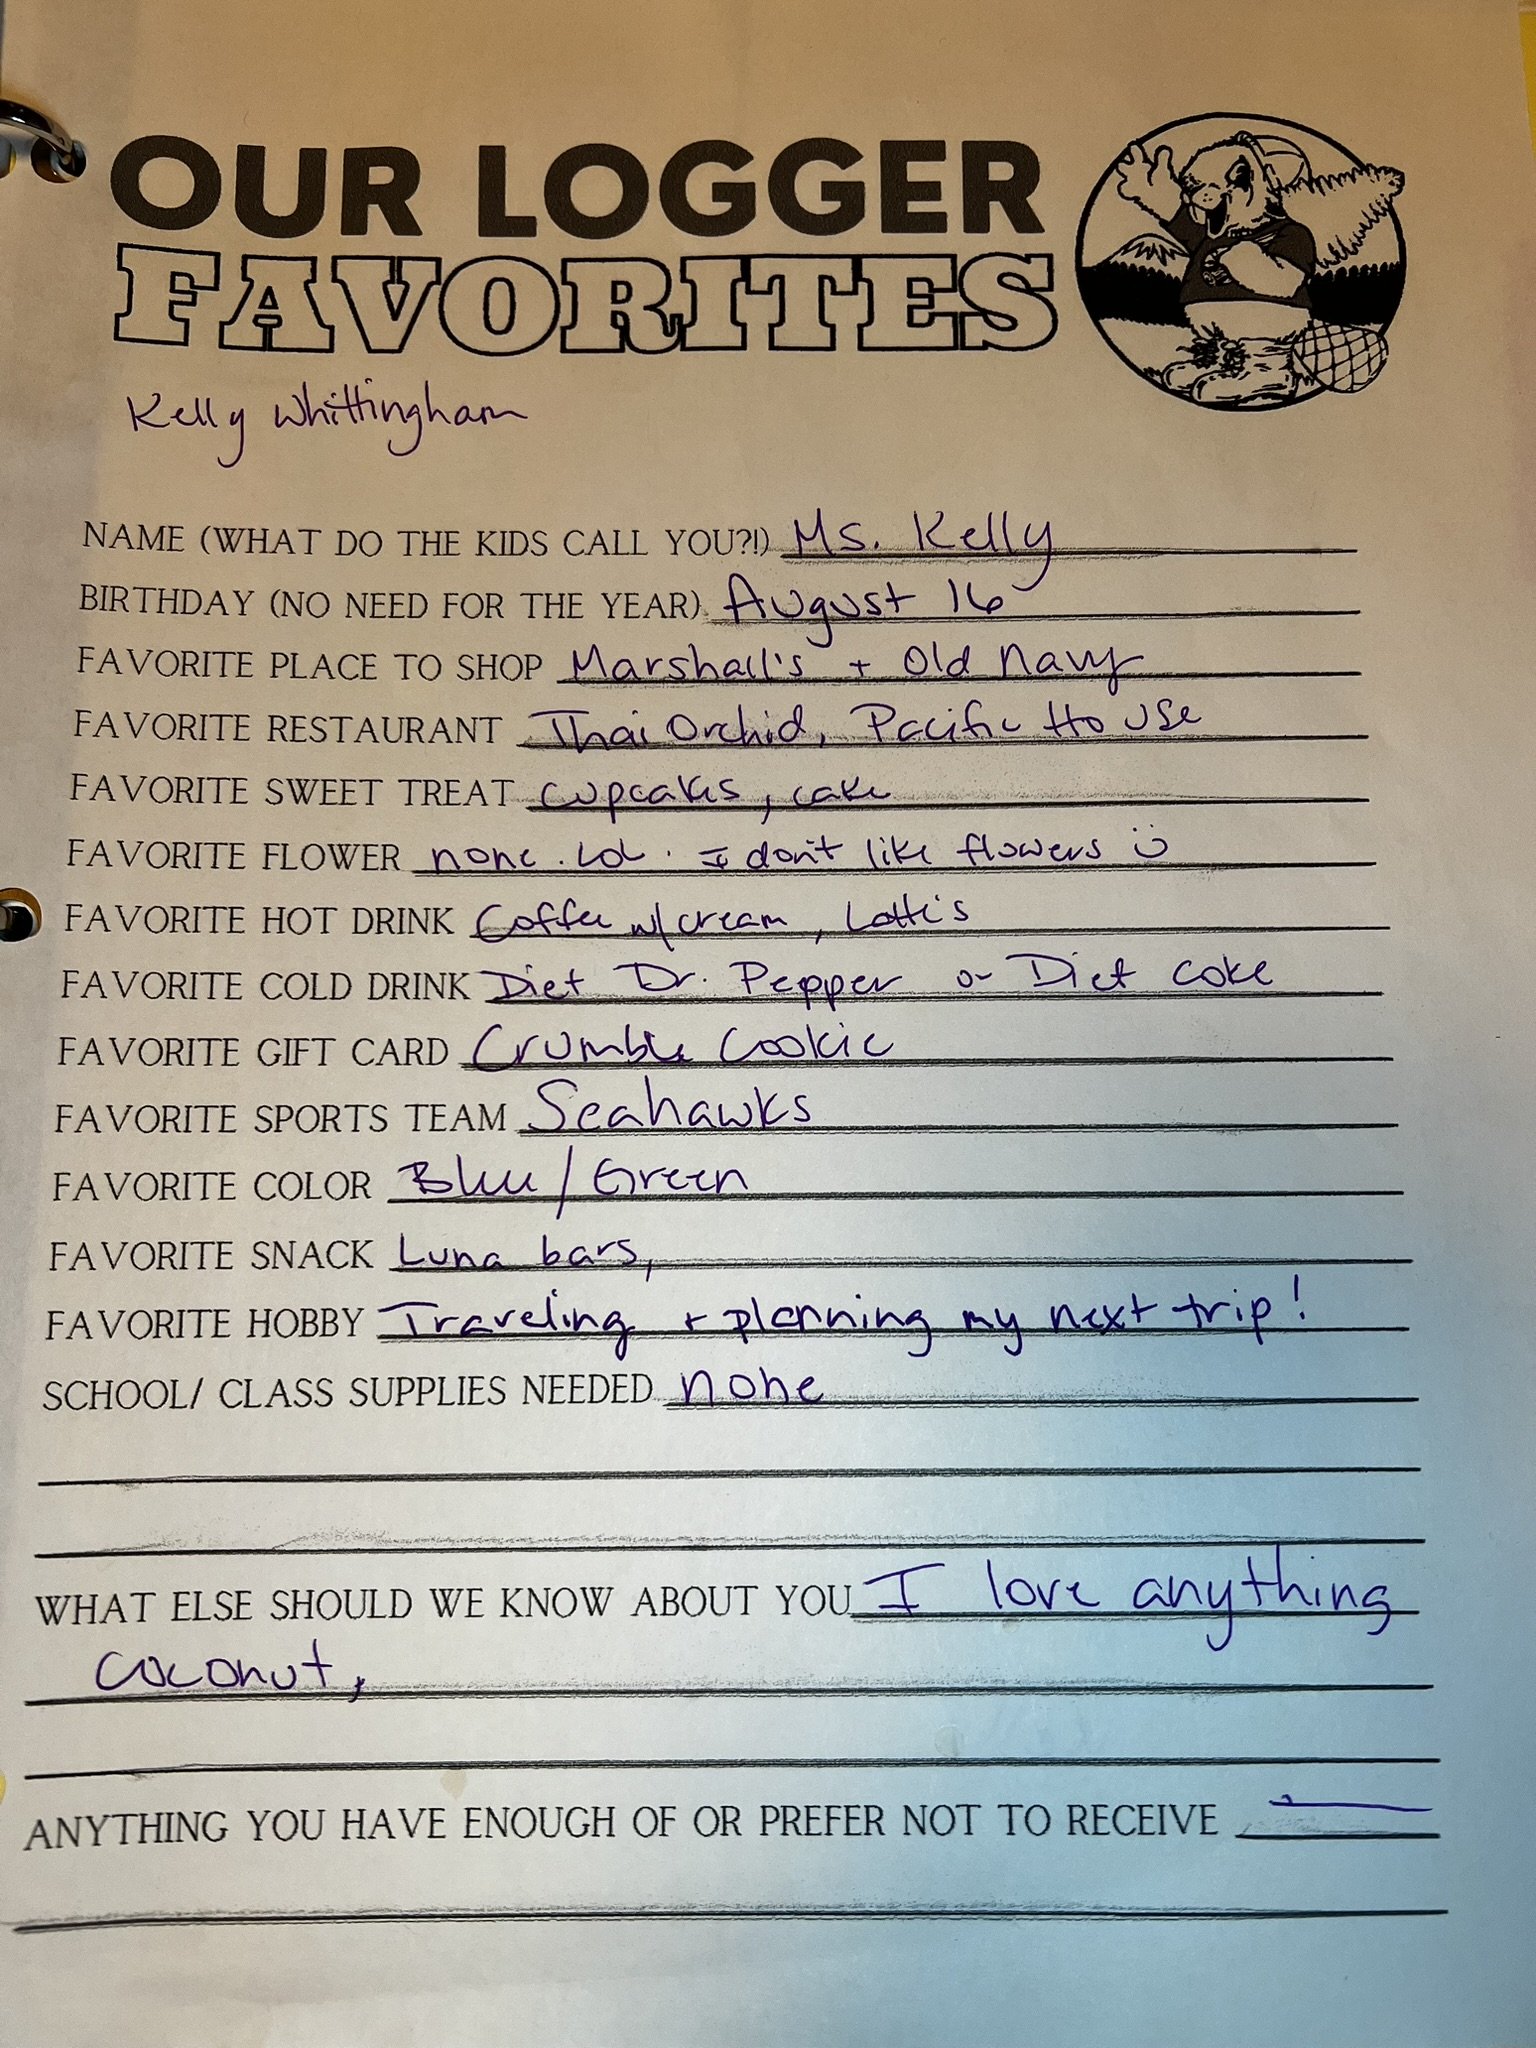 OUR LOGGER
FAVORITES
Kelly Whittingham
NAME (WHAT DO THE KIDS CALL YOU?!) Ms. Kelly
BIRTHDAY (NO NEED FOR THE YEAR) August 16
FAVORITE PLACE TO SHOP Marshall's + Old Navy
FAVORITE RESTAURANT Thai Orchid, Pacific House
FAVORITE SWEET TREAT cupcakes, cake
FAVORITE FLOWER none. LOL. I don't like flowers ü
FAVORITE HOT DRINK Coffee w/ cream, Latte's
FAVORITE COLD DRINK Diet Dr. Pepper or Diet Coke
FAVORITE GIFT CARD Crumble Cookie
FAVORITE SPORTS TEAM Seahawks
FAVORITE COLOR Blue / Green
FAVORITE SNACK Luna bars,
FAVORITE HOBBY Traveling + planning my next trip!
SCHOOL/ CLASS SUPPLIES NEEDED none
WHAT ELSE SHOULD WE KNOW ABOUT YOU I love anything
coconut,
ANYTHING YOU HAVE ENOUGH OF OR PREFER NOT TO RECEIVE —